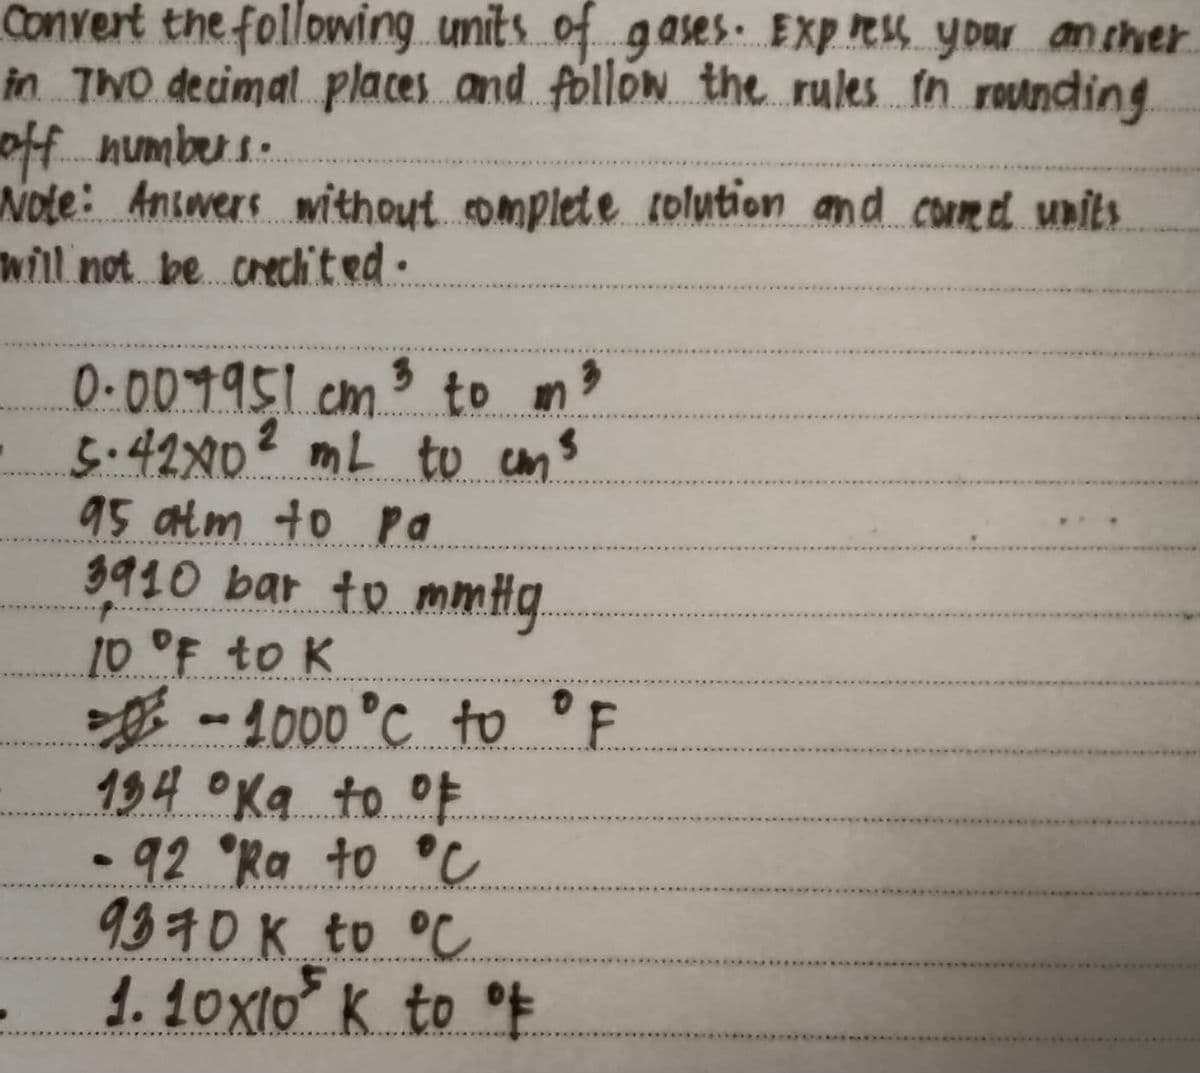 Convert the following units of gases. Express your answer
in TWO decimal places and follow the rules in rounding
off numbers.
Note: Answers without complete solution and correct units
will not be credited.
0.007951 cm³ to m³
5.42x10² mL to cm³
95 atm to Pa
3910 bar to mmHg
10 °F to K
-1000 °C to °F
134 °Ra to °F
-92 °Ra to °C
9370 K to °C
1.10x10⁵ K to °F